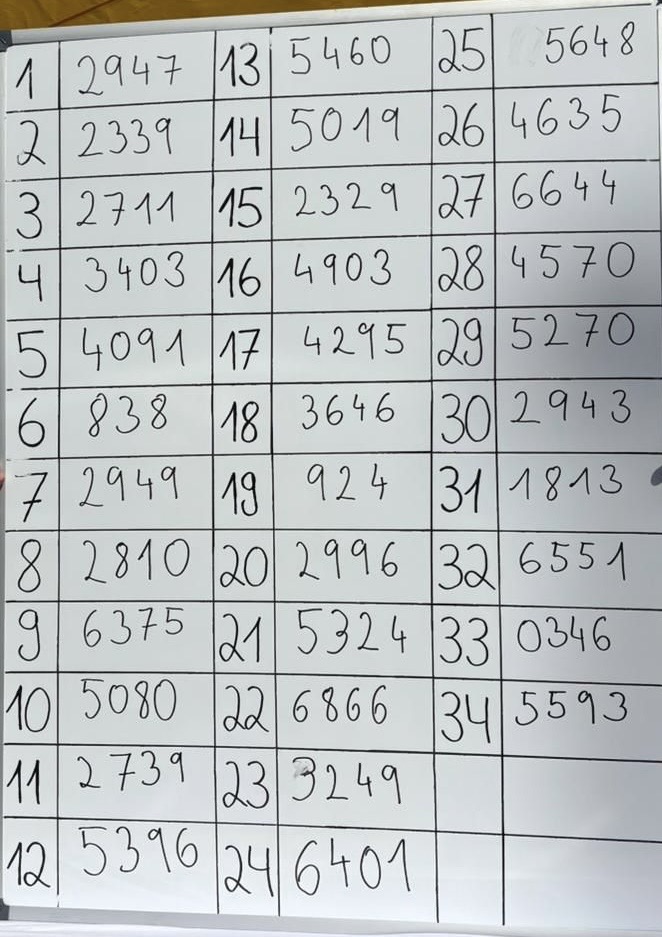 1 2947 13 5460 25 5648
2 2339 14 5019 26 4635
3 2711 15 2329 27 6644
4 3403 16 4903 28 4570
5 4091 17 4295 29 5270
6 838 18 3646 30 2943
7 2949 19 924 31 1813
8 2810 20 2996 32 6551
9 6375 21 5324 33 0346
10 5080 22 6866 34 5593
11 2739 23 3249
12 5396 24 6401